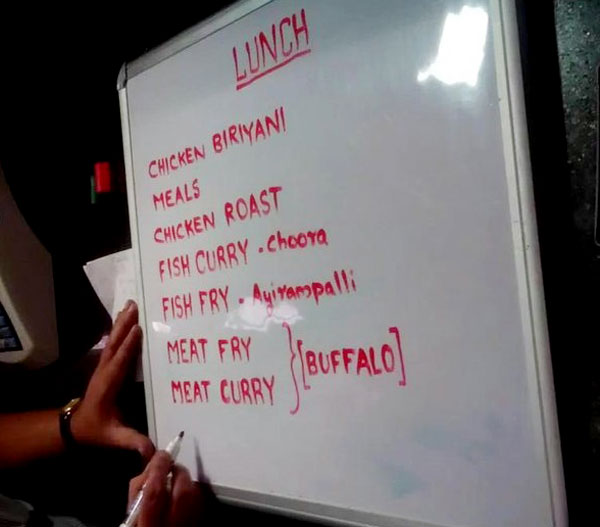 LUNCH
CHICKEN BIRIYANI
MEALS
CHICKEN ROAST
FISH CURRY - Choora
FISH FRY - Ayirampalli
MEAT FRY
MEAT CURRY
[BUFFALO]